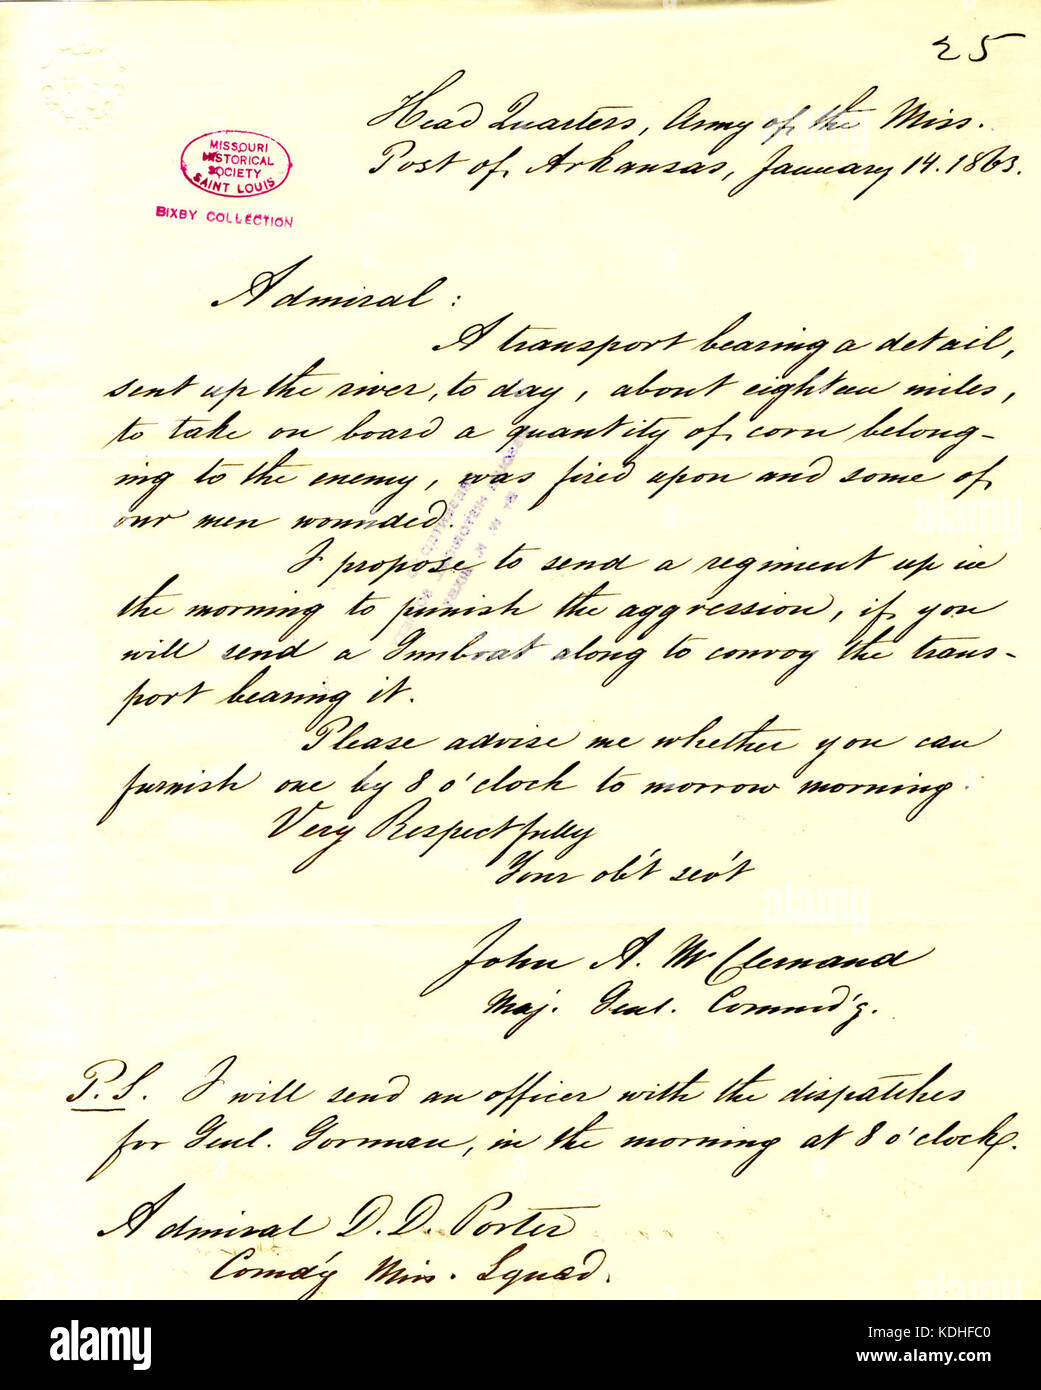 25
Head Quarters, Army of the Miss.
Post of Arkansas, January 14. 1863.
MISSOURI
HISTORICAL
SOCIETY
SAINT LOUIS
BIXBY COLLECTION
Admiral :
A transport bearing a detail,
sent up the river, to day, about eighteen miles,
to take on board a quantity of corn belong-
ing to the enemy, was fired upon and some of
our men wounded.
I propose to send a regiment up in
the morning to punish the aggression, if you
will send a Gunboat along to convoy the trans-
port bearing it.
Please advise me whether you can
furnish one by 8 o'clock to morrow morning.
Very Respectfully
Your ob't serv't
John A. McClernand
Maj. Genl. Commd'g.
P.S. I will send an officer with the dispatches
for Genl. Gorman, in the morning at 8 o'clock.
Admiral D. D. Porter
Comd'g Miss. Squad.
alamy
Image ID: KDHFC0
www.alamy.com